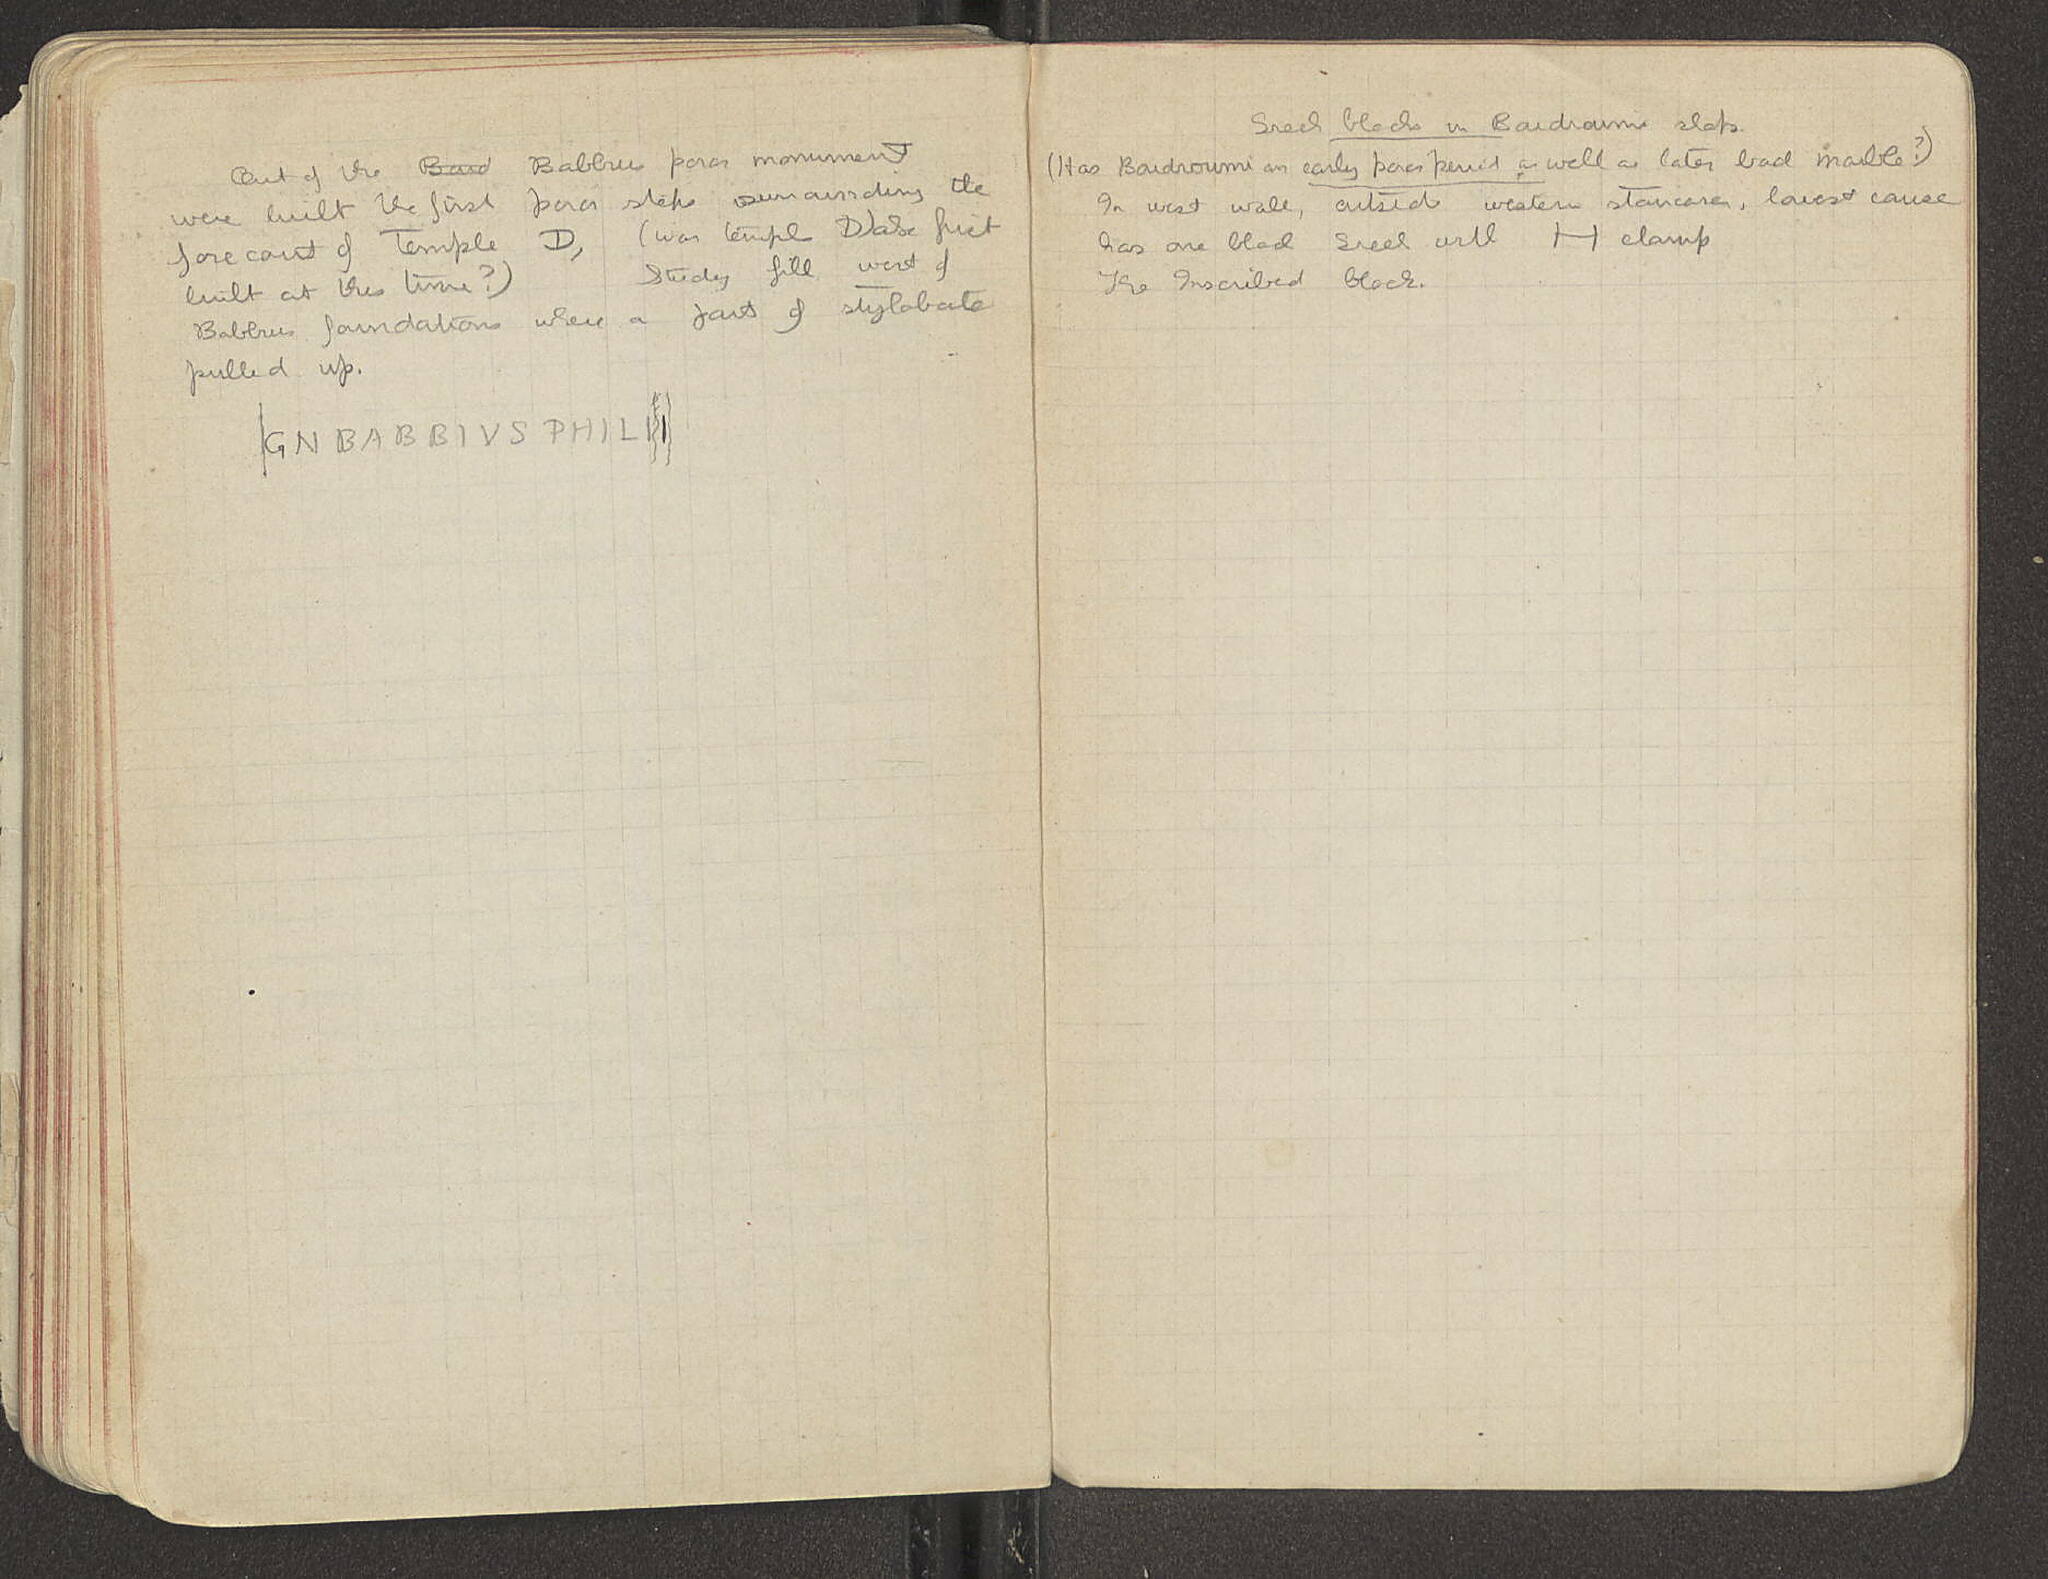 Out of the Boud Babbius poros monument
were built the first poros steps surrounding the
forecourt of Temple D, (was temple D also first
built at this time?) Study fill west of
Babbius foundations where a part of stylobate
pulled up.
GN BABBIVS PHIL
Greek blocks in Boudroumi steps.
(Has Boudroumi an early poros period as well as later bad marble?)
In west wall, outside western staircase, lowest course
has one block Greek with H clamp
The Inscribed block.